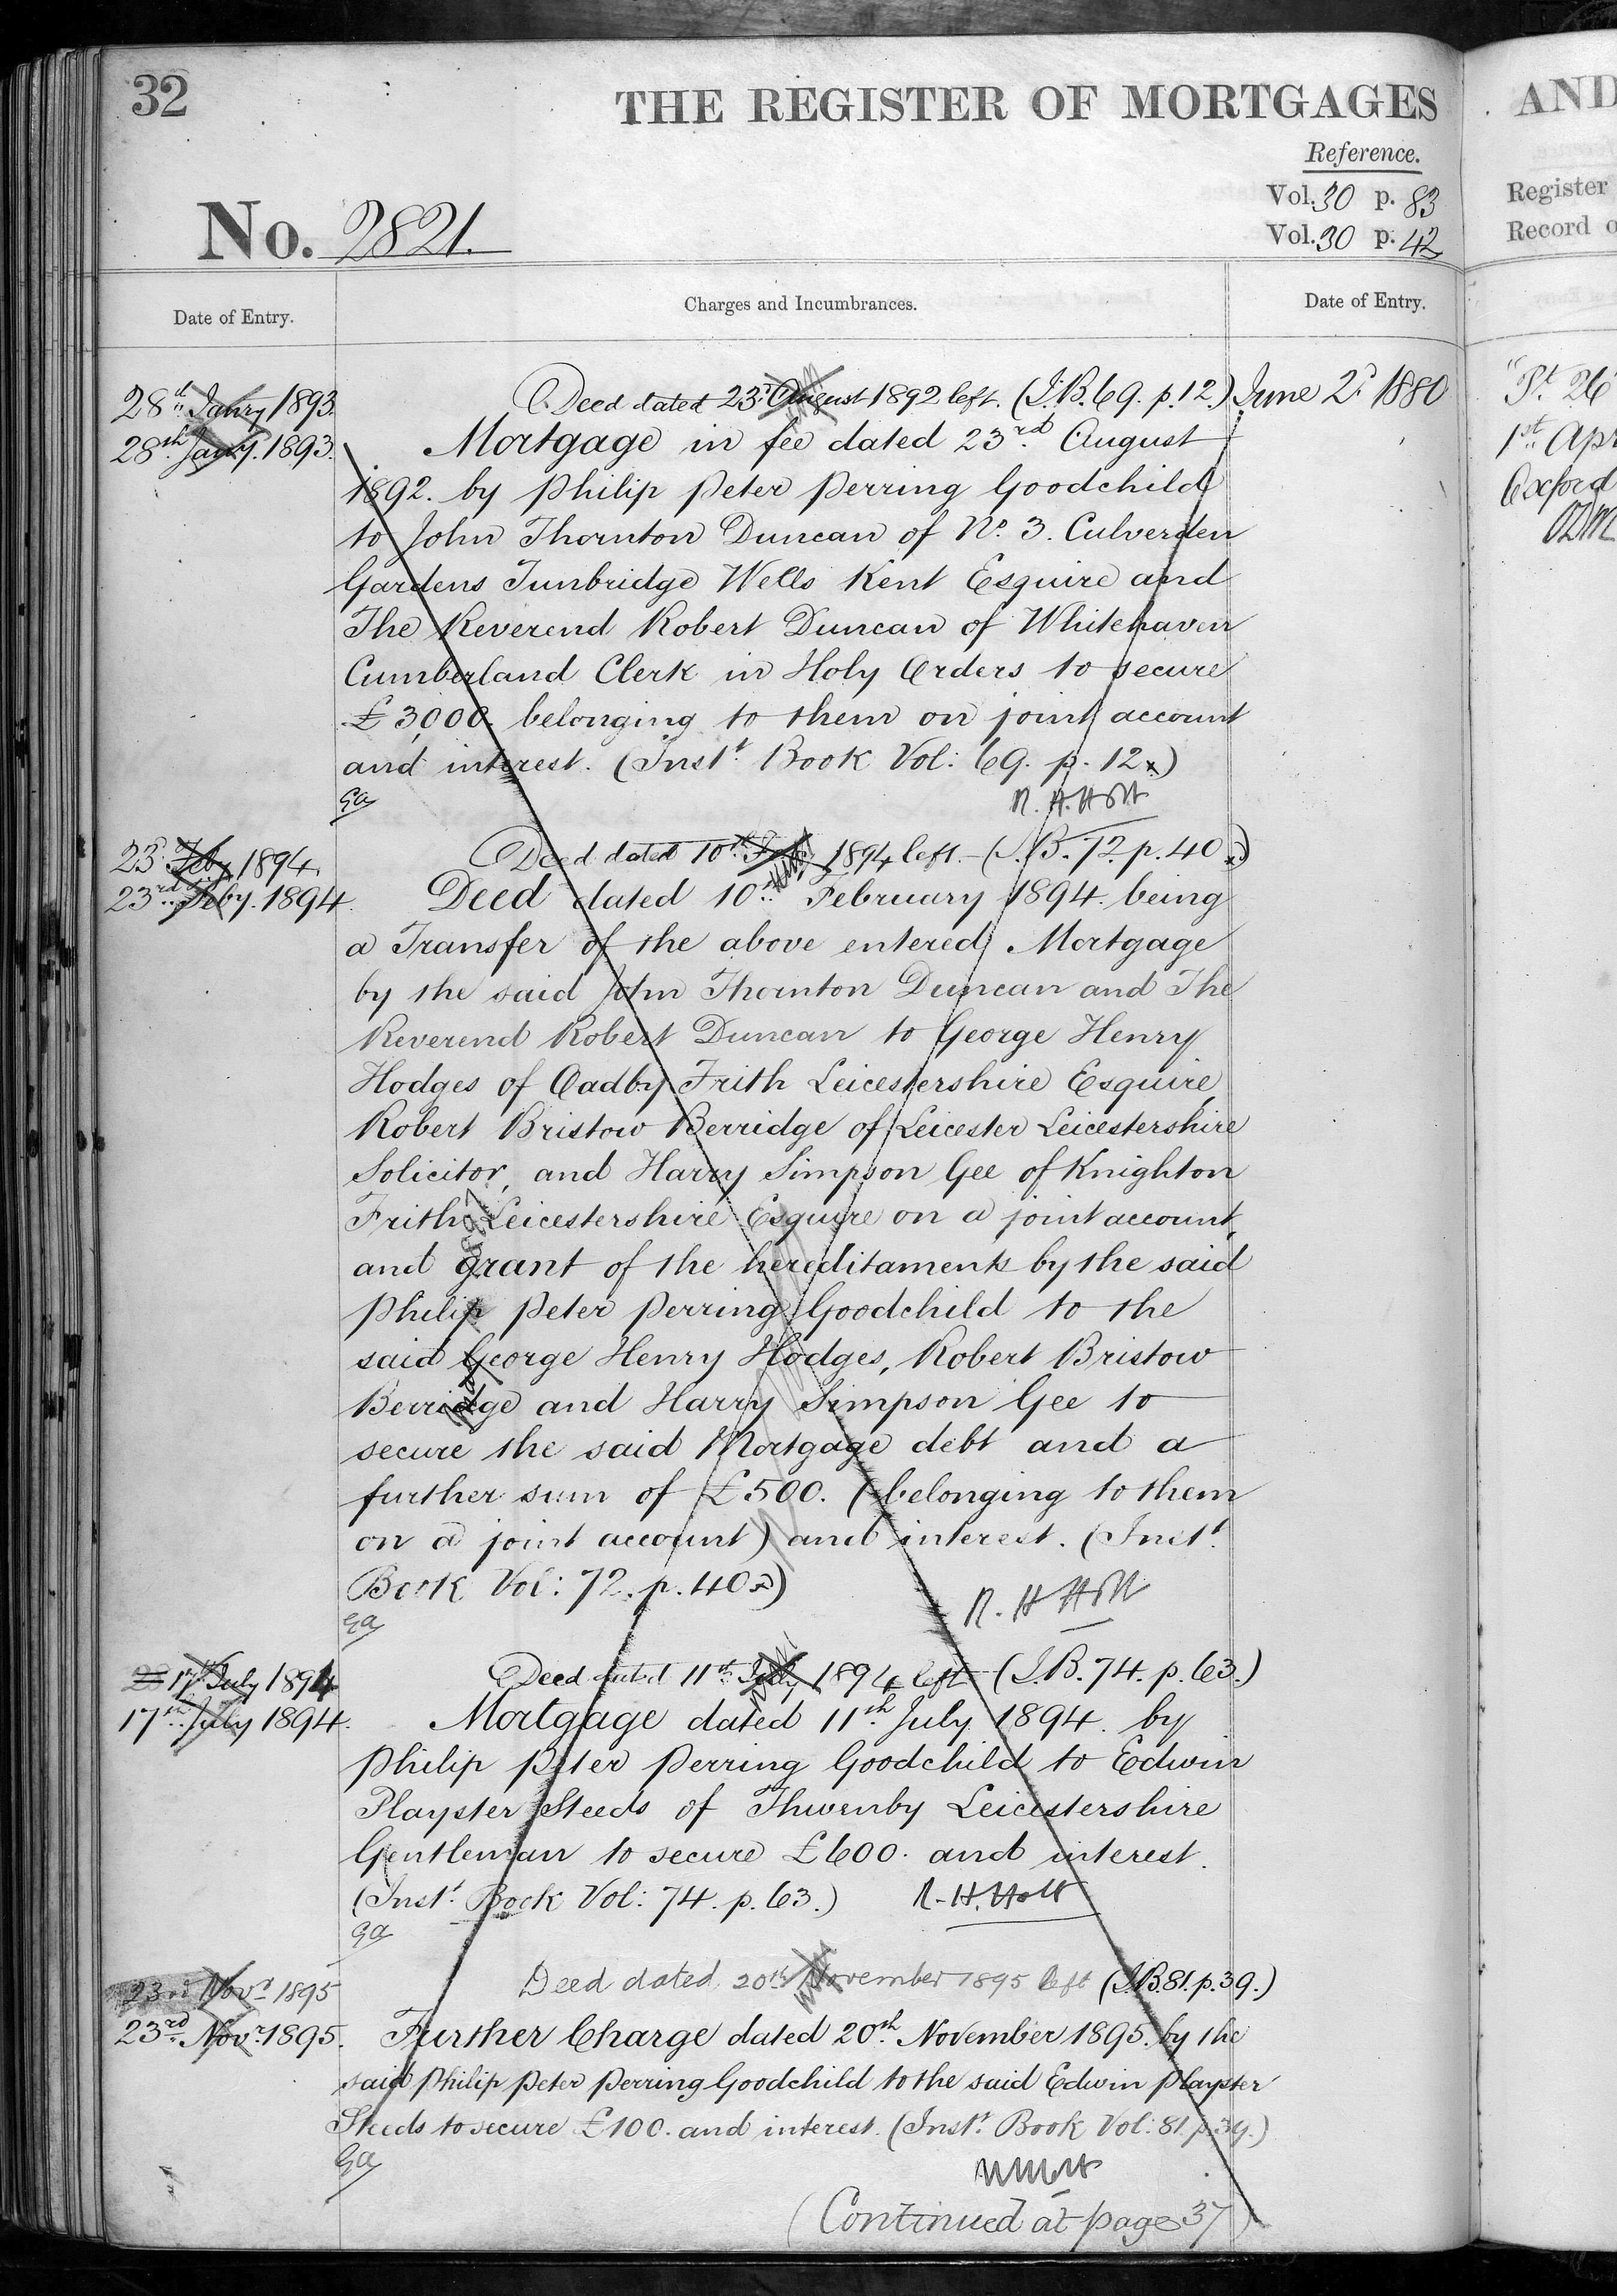 32
THE REGISTER OF MORTGAGES
Reference.
Vol. 30 p. 83
Vol. 30 p. 42
No. 2821.
Date of Entry.
Charges and Incumbrances.
Date of Entry.
28th Janry 1893.
Deed dated 23rd August 1892 left. (I.B. 69. p. 12.)
June 2d 1880
28th Jany. 1893.
Mortgage in fee dated 23rd August
1892. by Philip Peter Perring Goodchild
to John Thornton Duncan of No. 3. Culverden
Gardens Tunbridge Wells Kent Esquire and
The Reverend Robert Duncan of Whitehaven
Cumberland Clerk in Holy Orders to secure
£3,000. belonging to them on joint account
and interest. (Inst. Book Vol: 69. p. 12.)
GA
R. H. Holt
23d Feby 1894.
Deed dated 10th Feb. 1894 left. (I.B. 72. p. 40.)
23rd Feby. 1894.
Deed dated 10th February 1894. being
a Transfer of the above entered Mortgage
by the said John Thornton Duncan and The
Reverend Robert Duncan to George Henry
Hodges of Oadby Frith Leicestershire Esquire,
Robert Bristow Berridge of Leicester Leicestershire
Solicitor, and Harry Simpson Gee of Knighton
Frith Leicestershire Esquire on a joint account,
and grant of the hereditaments by the said
Philip Peter Perring Goodchild to the
said George Henry Hodges, Robert Bristow
Berridge and Harry Simpson Gee to
secure the said Mortgage debt and a
further sum of £500. (belonging to them
on a joint account) and interest. (Inst.
Book Vol: 72. p. 40.)
GA
R. H. Holt
17th July 1894
Deed dated 11th July 1894 left (I.B. 74. p. 63.)
17th July 1894.
Mortgage dated 11th July 1894. by
Philip Peter Perring Goodchild to Edwin
Playster Steeds of Thurnby Leicestershire
Gentleman to secure £600. and interest.
(Inst. Book Vol: 74. p. 63.)
R. H. Holt
GA
23rd Novr 1895
Deed dated 20th November 1895 left (I.B. 81. p. 39.)
23rd Novr. 1895.
Further Charge dated 20th November 1895. by the
said Philip Peter Perring Goodchild to the said Edwin Playster
Steeds to secure £100. and interest. (Inst. Book Vol: 81. p. 39.)
GA
(Continued at page 37)
AND
Register
Record o
Pt. 26
1st Apr
Oxford